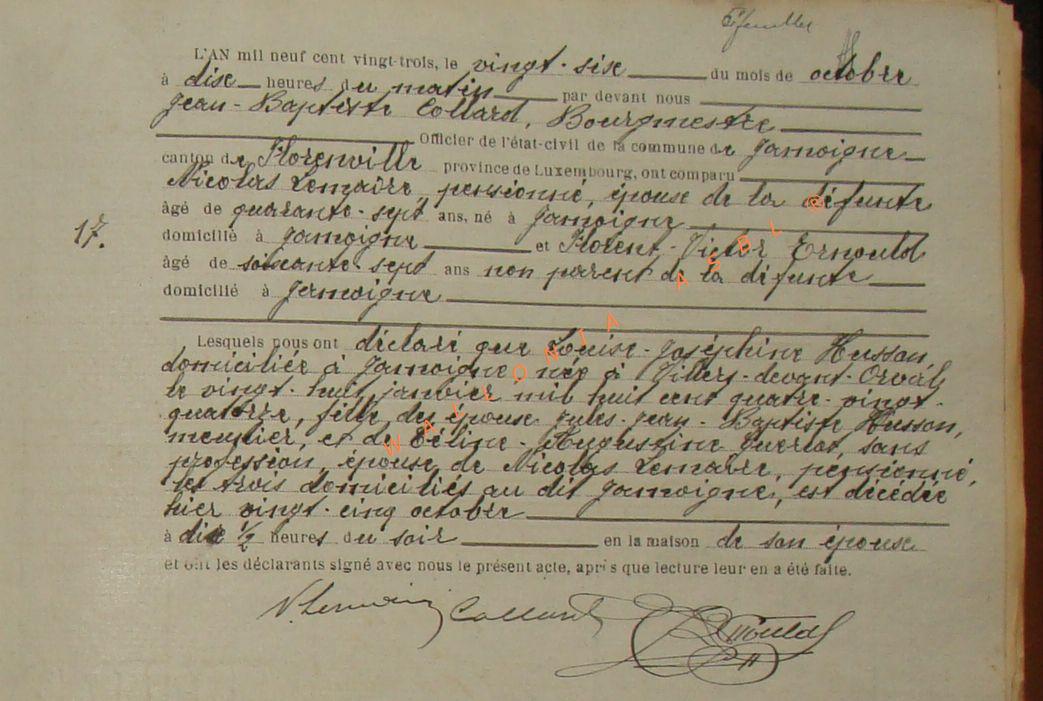 L'AN mil neuf cent vingt-trois, le vingt-sise du mois de october
à dise heures du matin par devant nous
Jean-Baptiste Collard, Bourgmestre
Officier de l'état-civil de la commune de Jamoigne
canton de Florenville province de Luxembourg, ont comparu
Nicolas Lemaire, pensionné, épouse de la défunte
âgé de quarante-sept ans, né à Jamoigne
17.
domicilié à Jamoigne et Florent-Victor Ernould
âgé de soisante-sept ans non parent de la défunte
domicilié à Jamoigne
Lesquels nous ont déclaré que Louise-Joséphine Husson,
domiciliée à Jamoigne, née à Villers-devant-Orval,
le vingt-huit janvier mil huit cent quatre-vingt-
quatorze, fille des épouse Jules-Jean-Baptiste Husson,
meunier, et de Céline-Augustine sans
profession, épouse de Nicolas Lemaire, pensionné,
les trois domiciliés au dit Jamoigne, est décédée
hier vingt-cinq october
à dix ½ heures du soir en la maison de son épouse
et ont les déclarants signé avec nous le présent acte, après que lecture leur en a été faite.
N. Lemaire Collard Ernould
WALLONIA ASBL @